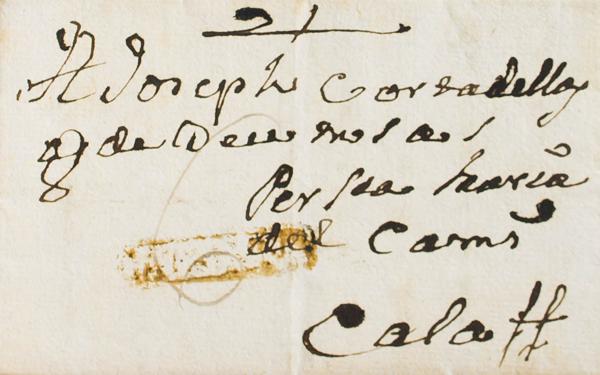 A Joseph Cortadellas
q de Deu m s a s
Per Sta Maria
del Camí
Calaff